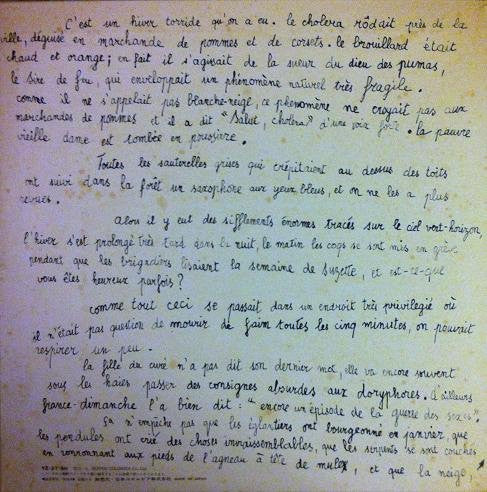 C'est un hiver torride qu'on a eu. le cholera rôdait près de la
ville, déguisé en marchande de pommes et de corsets. le brouillard était
chaud et orange; en fait il s'agissait de la sueur du dieu des pumas,
le Sire de feu, qui enveloppait un phénomène naturel très fragile.
comme il ne s'appelait pas blanche-neige, ce phénomène ne croyait pas aux
marchandes de pommes et il a dit "Salut, choléra" d'une voix forte. la pauvre
vieille dame est tombée en poussière.
Toutes les sauterelles grises qui crépitaient au dessus des toits
ont suivi dans la forêt un saxophone aux yeux bleus, et on ne les a plus
revues.
Alors il y eut des sifflements énormes tracés sur le ciel vert-horizon,
l'hiver s'est prolongé très tard dans la nuit, le matin les coqs se sont mis en grève
pendant que les brigadiers lisaient la semaine de Suzette, et est-ce-que
vous êtes heureux parfois?
comme tout ceci se passait dans un endroit très privilégié où
il n'était pas question de mourir de faim toutes les cinq minutes, on pouvait
respirer un peu.
la fille du curé n'a pas dit son dernier mot, elle va encore souvent
sous les haies passer des consignes absurdes aux doryphores. d'ailleurs
france-dimanche l'a bien dit: "encore un épisode de la guerre des sexes".
ça n'empêche pas que les églantiers ont bourgeonné en janvier, que
les pendules ont crié des choses invraisemblables, que les serpents se sont couchés
en ronronnant aux pieds de l'agneau à tête de mulet, et que la neige,